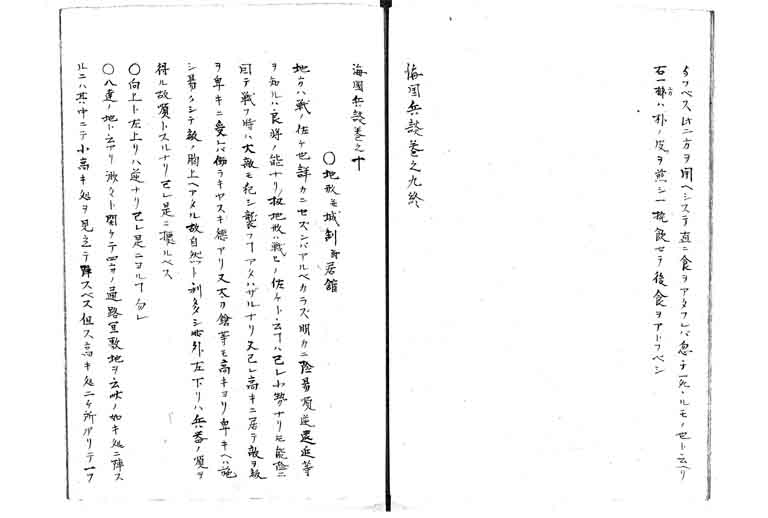 タフベス此二方ヲ用ヘシステ直ニ食ヲアタフレバ忽チ死ルモノ也ト云ヘリ
右一方ハ朴ノ皮ヲ煎シ一椀飲セテ後食ヲアトフベシ
海国兵談巻之九終
海国兵談巻之十
〇地形モ城制 居館
地形ハ戦ノ佐ケ也詳カニセズンバアルベカラズ明カニ険易順逆遠近等
ヲ知ルハ良将ノ能ナリ扨地形ハ戦ヒノ佐ケト云フハ己レ小勢ナリモ能険ニ
因テ戦フ時ハ大敵モ犯シ襲フ アタハザルナリ又己レ高キニ居テ敵ヲ
ヲ卑キニ受レバ働ラキヤスキ徳アリ又大刀鎗等モ高キヨリ卑キヘハ施
シ易クシテ敵ノ胸上ヘアタル故自然ト利多シ此外左下リハ兵器ノ順ヲ
得ル故順トスルナリ己レ是ニ拠ルベス
〇向上ト左上リハ逆ナリ己レ是ニヨル 勿レ
〇八達ノ地ト云アリ 開ケテ四方ノ通路宜敷地ヲ云此ノ如キ処ニ陣ス
ルニハ其中ニテ小高キ処ヲ見立テ陣スベス但ス高キ処二ケ所アリテ一ツ